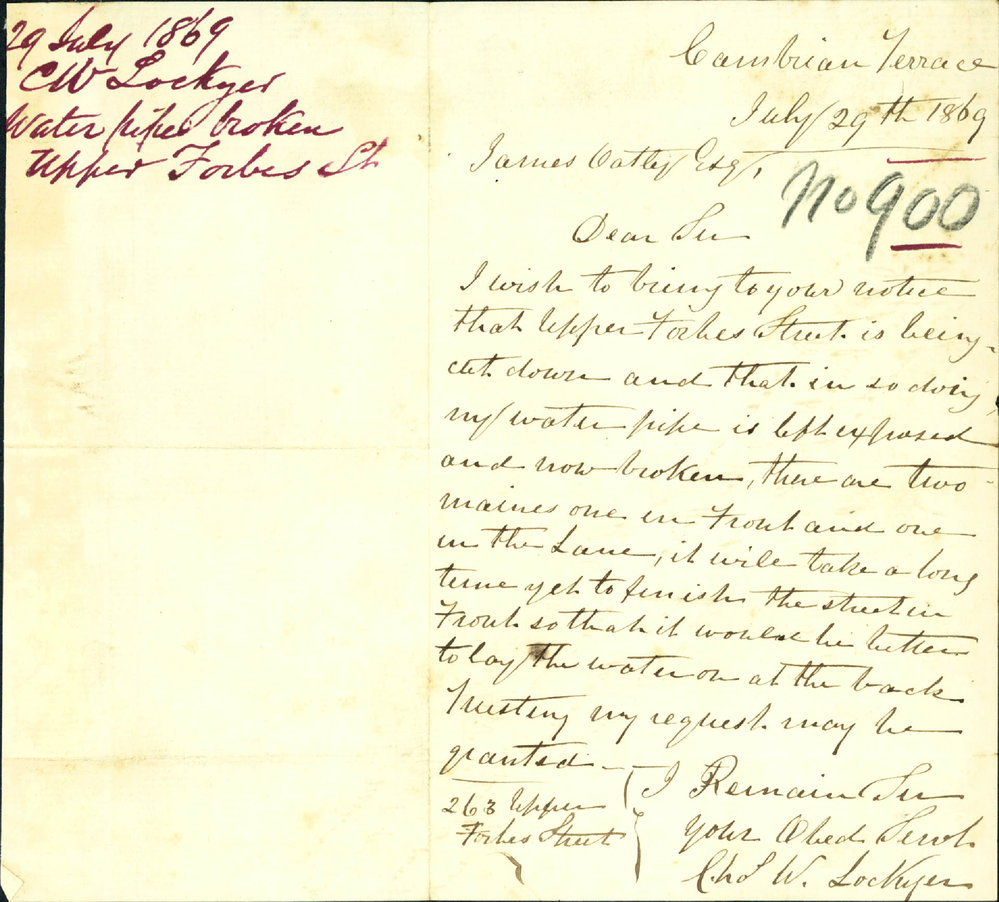 29 July 1869
CW Lockyer
Water pipe broken
Upper Forbes St
Cambrian Terrace
July 29th 1869
James Oatley Esq,
No 900
Dear Sir
I wish to bring to your notice
that Upper Forbes Street is being
cut down and that in so doing
my water pipe is left exposed
and now broken, there are two
maines one in Front and one
in the Lane, it will take a long
time yet to finish the street in
Front so that it would be better
to lay the water on at the back
Trusting my request may be
granted—
I Remain Sir
your Obed Servt
Chs W. Lockyer
263 Upper
Forbes Street